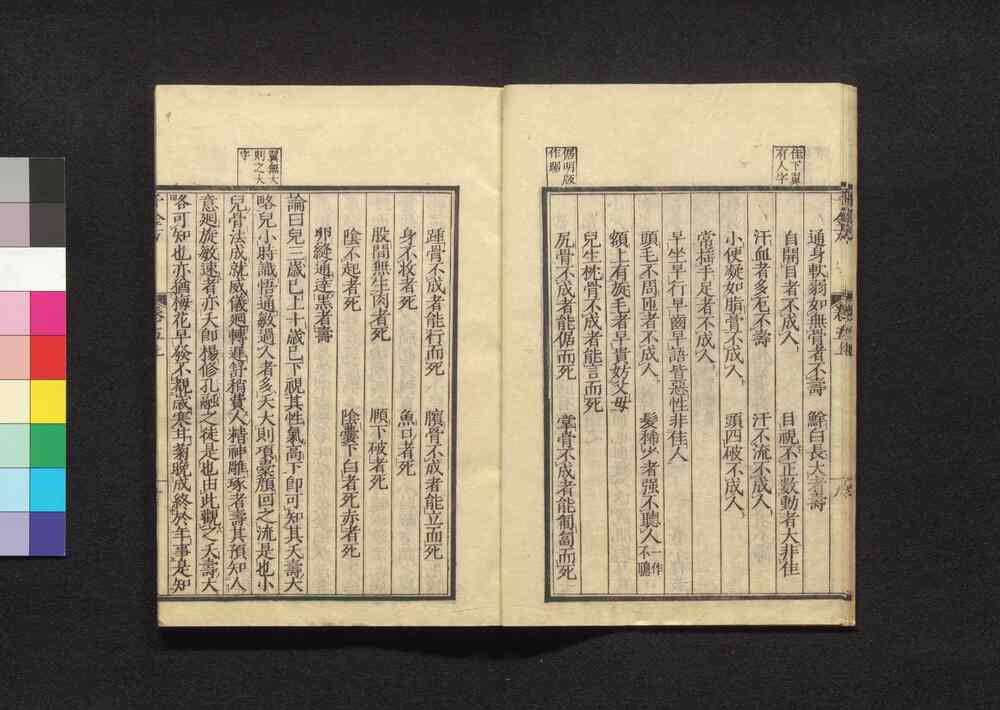 佳下翼
有人字
倨明版
作踞
通身軟弱如無骨者不壽　鮮白長大者壽
自開目者不成人　目視不正數動者大非佳
汗血者多厄不壽　汗不流不成人
小便凝如脂膏不成人　頭四破不成人
常搖手足者不成人
早坐早行早齒早語皆惡性非佳人
頭毛不周匝者不成人　髮稀少者强不聽人一作不聰
額上有旋毛者早貴妨父母
兒生枕骨不成者能言而死
尻骨不成者能倨而死　掌骨不成者能匍匐而死
翼無大
則之大
字
踵骨不成者能行而死　臏骨不成者能立而死
身不收者死　魚口者死
股間無生肉者死　頤下破者死
陰不起者死　陰囊下白者死赤者死
卵縫通達黑者壽
論曰兒三歲已上十歲已下視其性氣高下卽可知其夭壽大
略兒小時識悟通敏過人者多夭大則項橐顏回之流是也小
兒骨法成就威儀廻轉遲舒稍費人精神雕琢者壽其預知人
意廻旋敏速者亦夭卽楊修孔融之徒是也由此觀之夭壽大
略可知也亦猶梅花早發不覩歲寒甘菊晚成終於年事是知